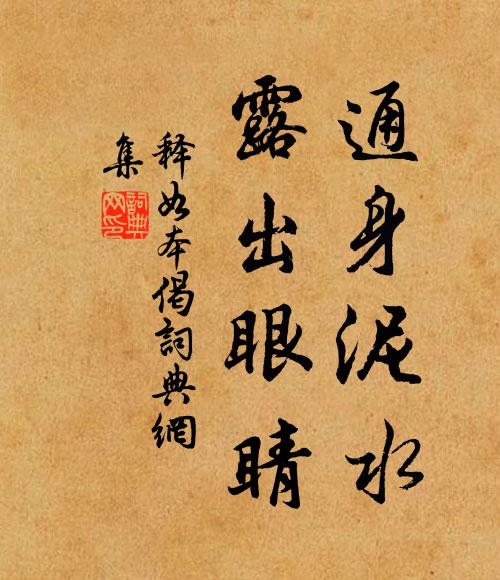 通身泥水
露出眼睛
释如本偈詞典網
集
詞典
网印